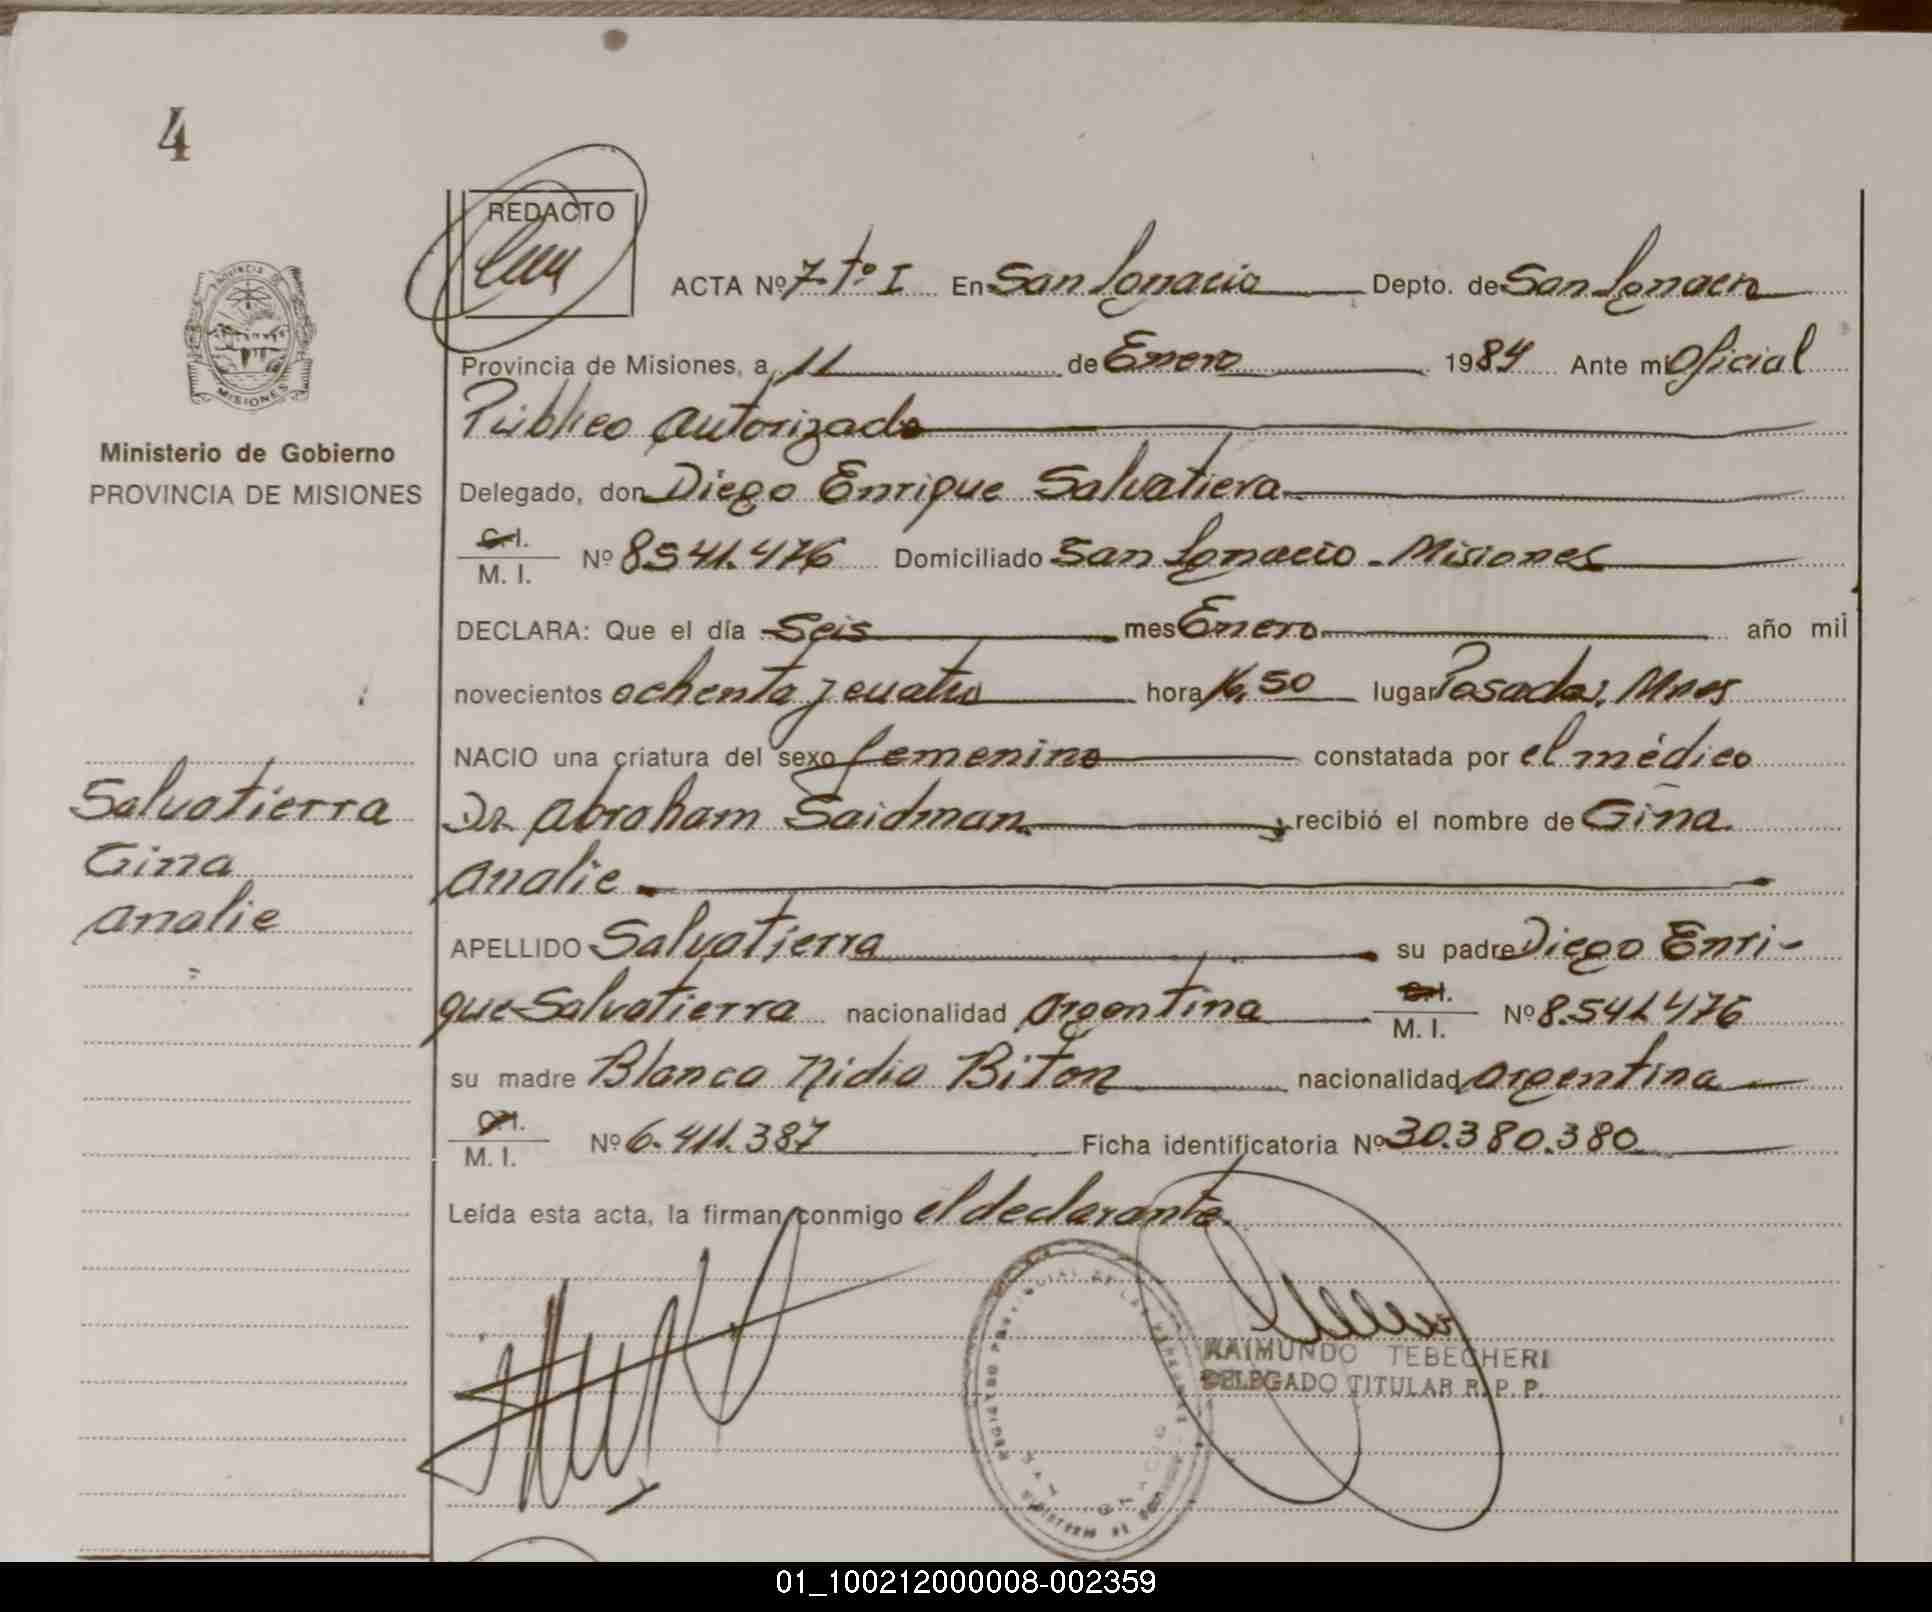 4
REDACTO
ACTA Nº 7-tº I En San Ignacio Depto. de San Ignacio
Provincia de Misiones, a 11 de Enero 1984 Ante mi Oficial
Público autorizado
Delegado, don Diego Enrique Salvatiera
C.I.
M. I. Nº 8541.476 Domiciliado San Ignacio - Misiones
DECLARA: Que el día Seis mes Enero año mil
novecientos ochenta y cuatro hora 16,50 lugar Posadas, Mnes
NACIO una criatura del sexo femenino constatada por el médico
Dr. Abraham Saidman recibió el nombre de Gina
Analie
APELLIDO Salvatierra su padre Diego Enri-
que Salvatierra nacionalidad argentina C.I.
M. I. Nº 8.541.476
su madre Blanca Nidia Biton nacionalidad argentina
C.I.
M. I. Nº 6.411.387 Ficha identificatoria Nº 30.380.380
Leída esta acta, la firman conmigo el declarante.
RAIMUNDO TEBECHERI
DELEGADO TITULAR R. P. P.
PROVINCIA DE
MISIONES
Ministerio de Gobierno
PROVINCIA DE MISIONES
Salvatierra
Gina
Analie
REGISTRO PROVINCIAL DE LAS PERSONAS
MINISTERIO DE GOBIERNO
01_100212000008-002359